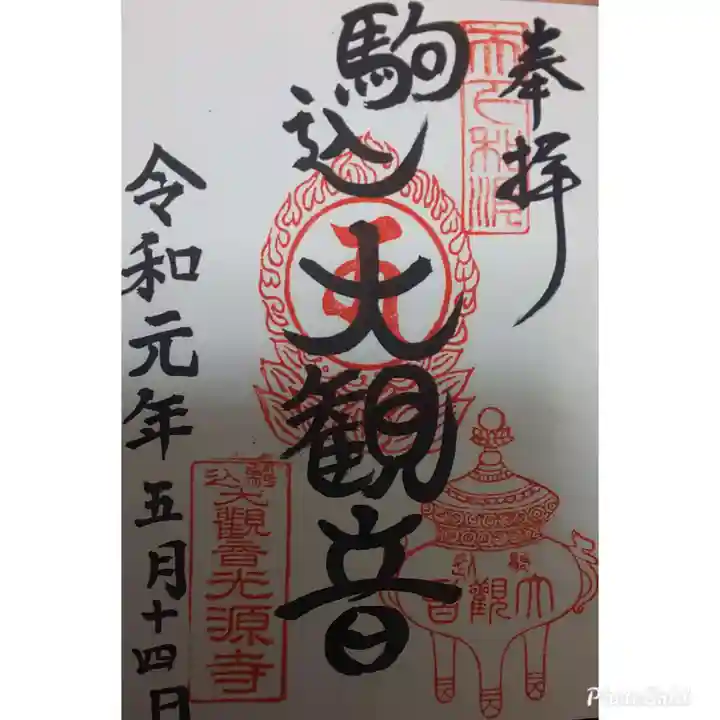 奉拝
駒込
大観音
令和元年五月十四日
駒込
大觀音光源寺
駒込
大觀音